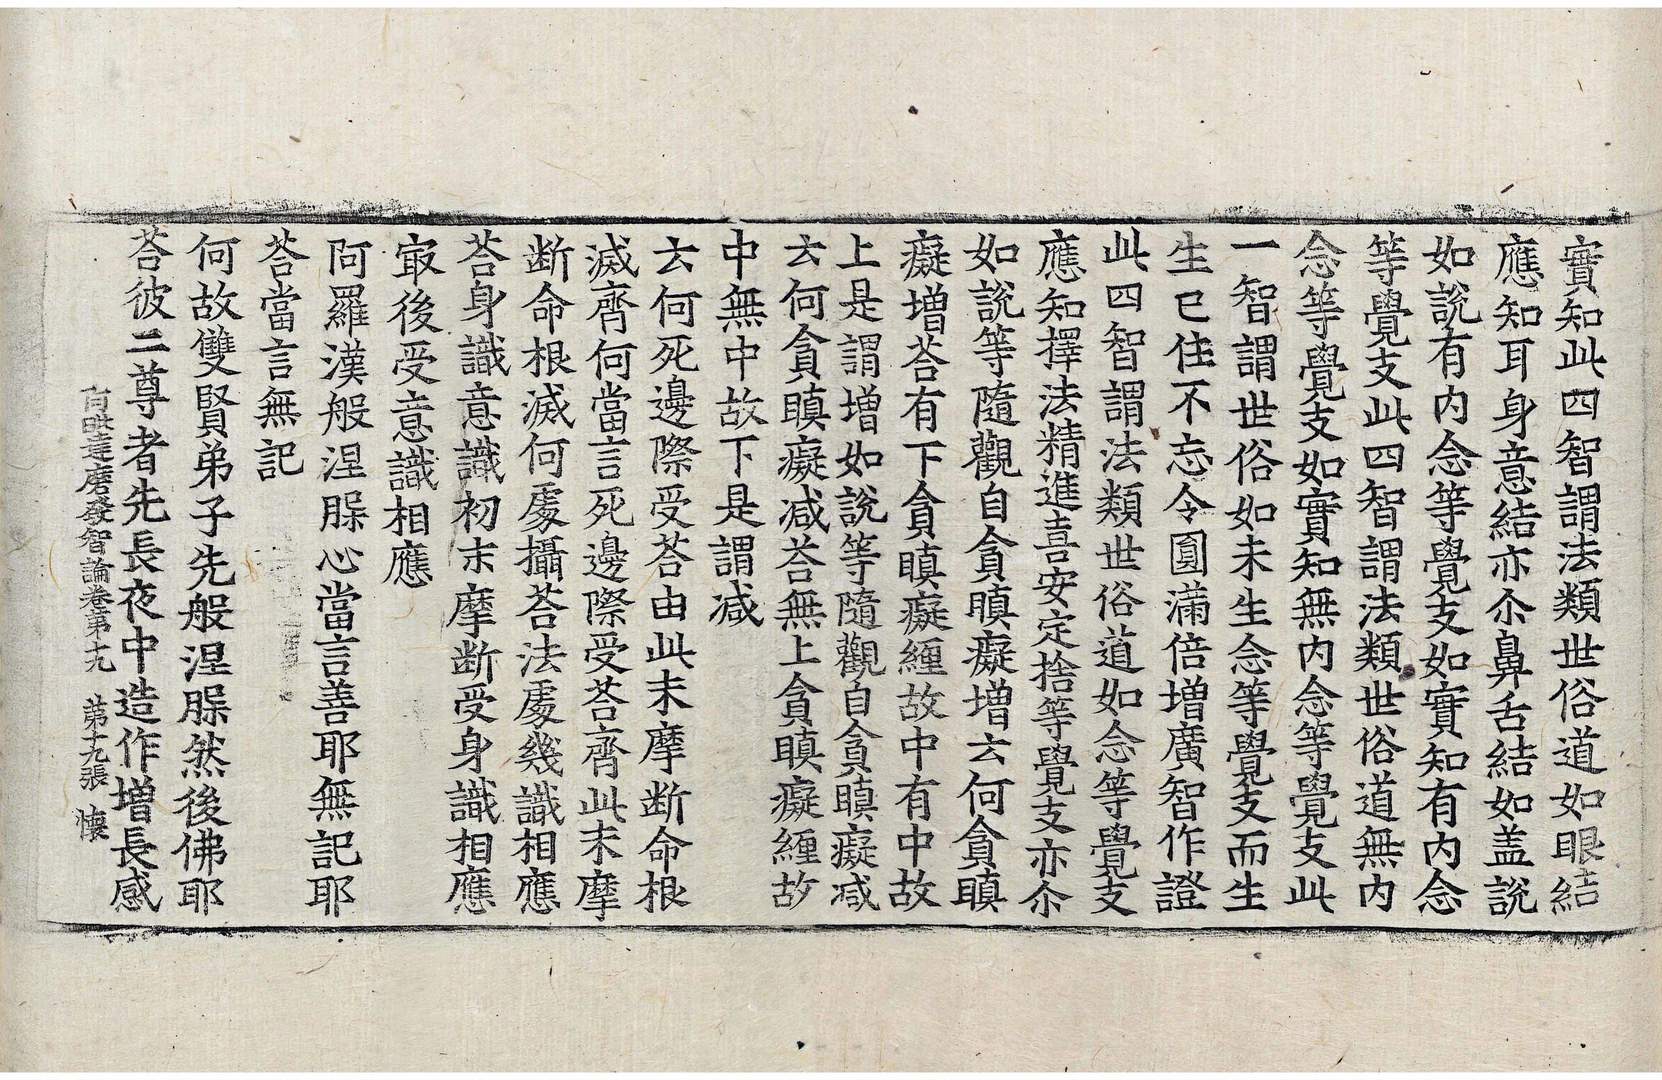 實知此四智謂法類世俗道如眼結
應知耳身意結亦尒鼻舌結如盖說
如說有內念等覺支如實知有內念
等覺支此四智謂法類世俗道無內
念等覺支如實知無內念等覺支此
一智謂世俗如未生念等覺支而生
生已住不忘令圓滿倍增廣智作證
此四智謂法類世俗道如念等覺支
應知擇法精進喜安定捨等覺支亦尒
如說等隨觀自貪瞋癡增云何貪瞋
癡增荅有下貪瞋癡纏故中有中故
上是謂增如說等隨觀自貪瞋癡減
云何貪瞋癡減荅無上貪瞋癡纏故
中無中故下是謂減
云何死邊際受荅由此末摩断命根
滅齊何當言死邊際受荅齊此末摩
断命根滅何處攝荅法處幾識相應
荅身識意識初末摩断受身識相應
㝡後受意識相應
阿羅漢般涅槃心當言善耶無記耶
荅當言無記
何故雙賢弟子先般涅槃然後佛耶
荅彼二尊者先長夜中造作增長感
阿毗達磨發智論卷第十九 第十九張 懷